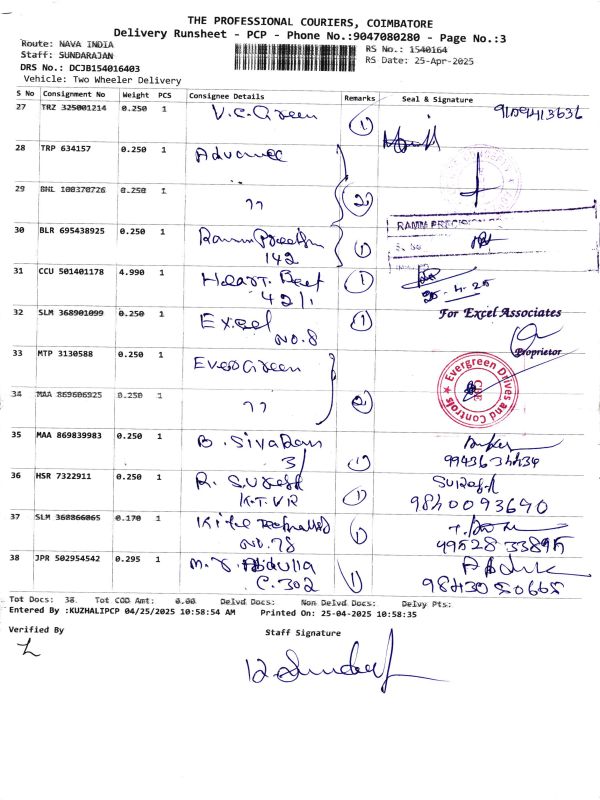 THE PROFESSIONAL COURIERS, COIMBATORE
Delivery Runsheet - PCP - Phone No.:9047080280 - Page No.:3
Route: NAVA INDIA
RS No.: 1540164
Staff: SUNDARAJAN
RS Date: 25-Apr-2025
DRS No.: DCJB154016403
Vehicle: Two Wheeler Delivery
S No Consignment No Weight PCS Consignee Details Remarks Seal & Signature
27 TRZ 325001214 0.250 1 V.C. Green 1 9109413636
28 TRP 634157 0.250 1 Advance
29 BNL 100370726 0.250 1 " 2
RAMM PRECISION
30 BLR 695438925 0.250 1 Ramm 142 1
31 CCU 501401178 4.990 1 Heart Beet 42/1 1
25-4-25
32 SLM 368901099 0.250 1 Excel NO.8 1
For Excel Associates
Proprietor
33 MTP 3130588 0.250 1 EverGreen
Evergreen Drives and Controls
34 MAA 869606925 0.250 1 " 2
35 MAA 869839983 0.250 1 B. Sivaram 3/ 1
36 HSR 7322911 0.250 1 R. Suresh K.T.V.R 1 Suresh 9840093690
37 SLM 368866065 0.170 1 NO.78 1
38 JPR 502954542 0.295 1 Abdulla C.302 1
Tot Docs: 38 Tot COD Amt: 0.00 Delvd Docs: Non Delvd Docs: Delvy Pts:
Entered By :KUZHALIPCP 04/25/2025 10:58:54 AM Printed On: 25-04-2025 10:58:35
Verified By
Staff Signature